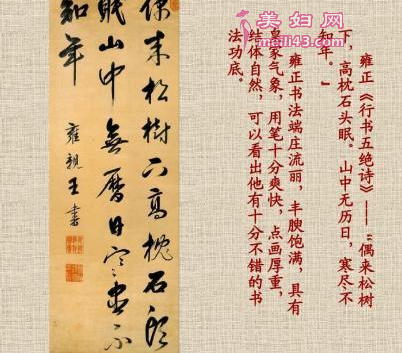 美妇网
meili43.com
雍正《行书五绝诗》——“偶来松树
下，高枕石头眠。山中无历日，寒尽不
知年。”
雍正书法端庄流丽，丰腴饱满，具有
皇家气象，用笔十分爽快，点画厚重，
结体自然，可以看出他有十分不错的书
法功底。
偶来松樹下高枕石頭
眠山中無曆日寒盡不
知年
雍親王書